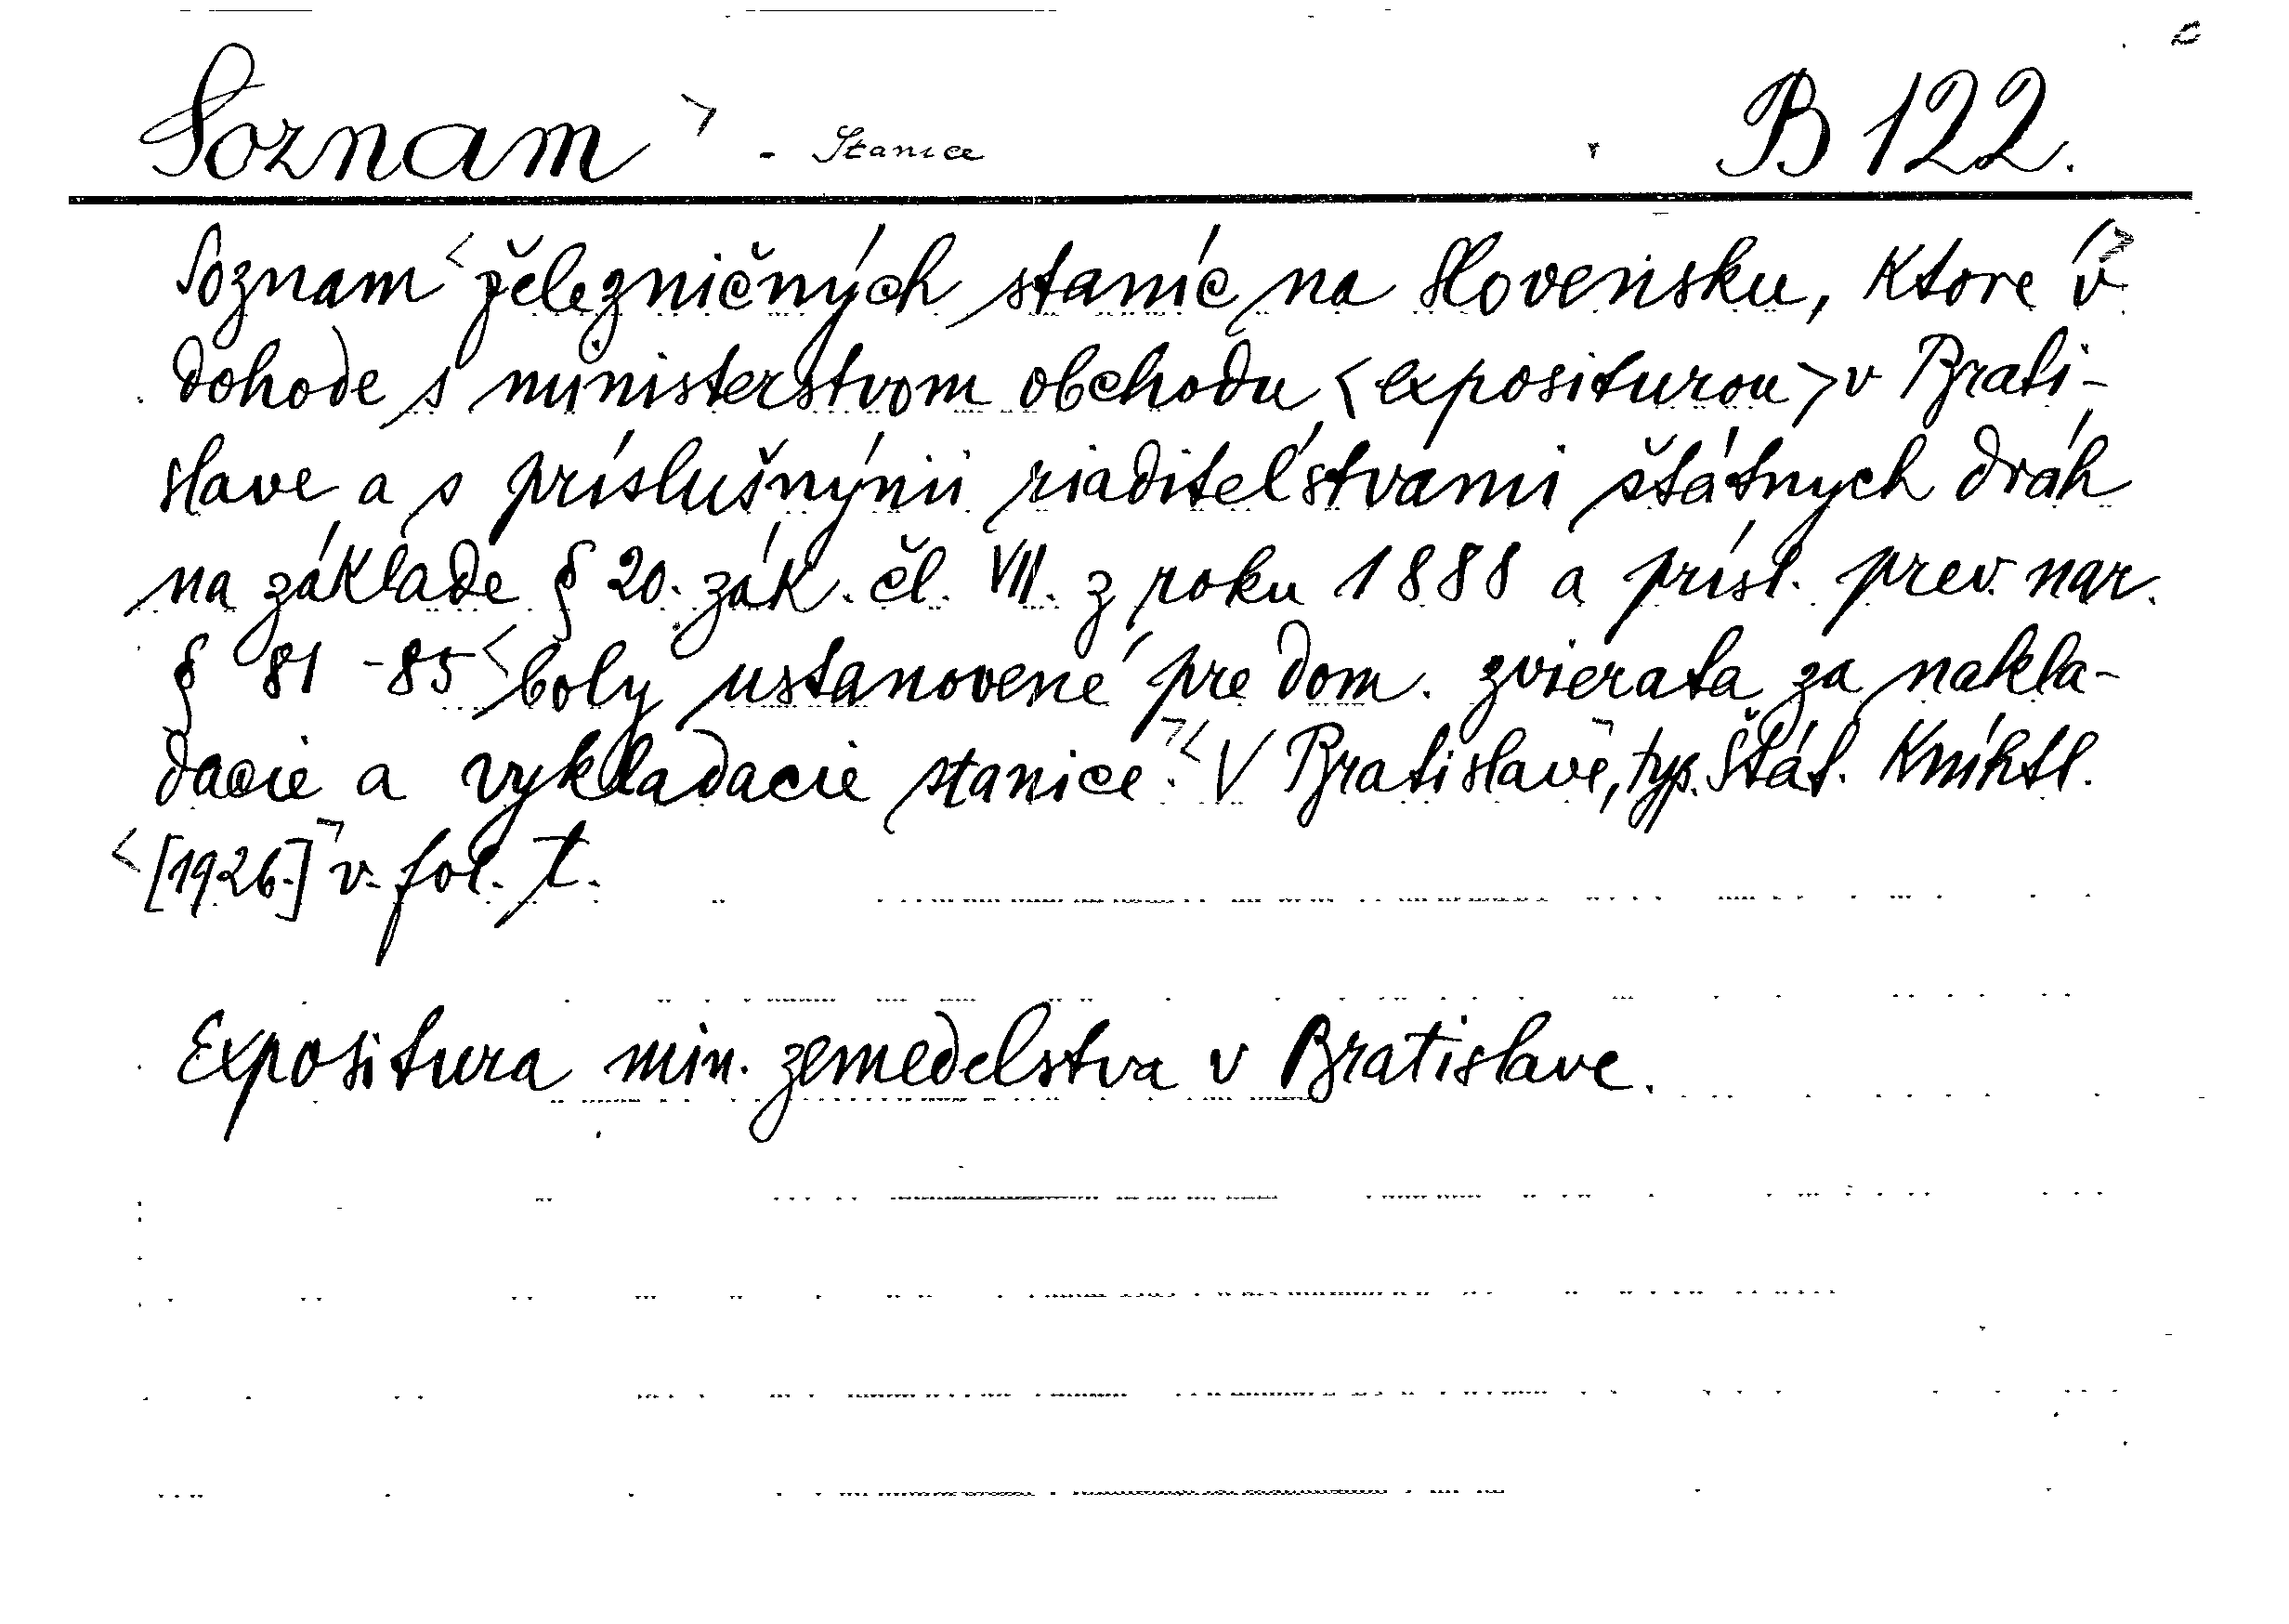 Soznam - Stanice B 122.
Soznam železničných staníc na Slovensku, ktoré v
dohode s ministerstvom obchodu <expositurou> v Brati-
slave a s príslušnými riaditeľstvami štátnych dráh
na základe § 20. zák. čl. VII. z roku 1888 a prísl. prev. nar.
§ 81-85 boly ustanovené pre dom. zvierata za nakla-
dacie a vykladacie stanice. V Bratislave, typ. Štát. Kníhtl.
[1926.] v. fol. T.
Expositura min. zemedelstva v Bratislave.